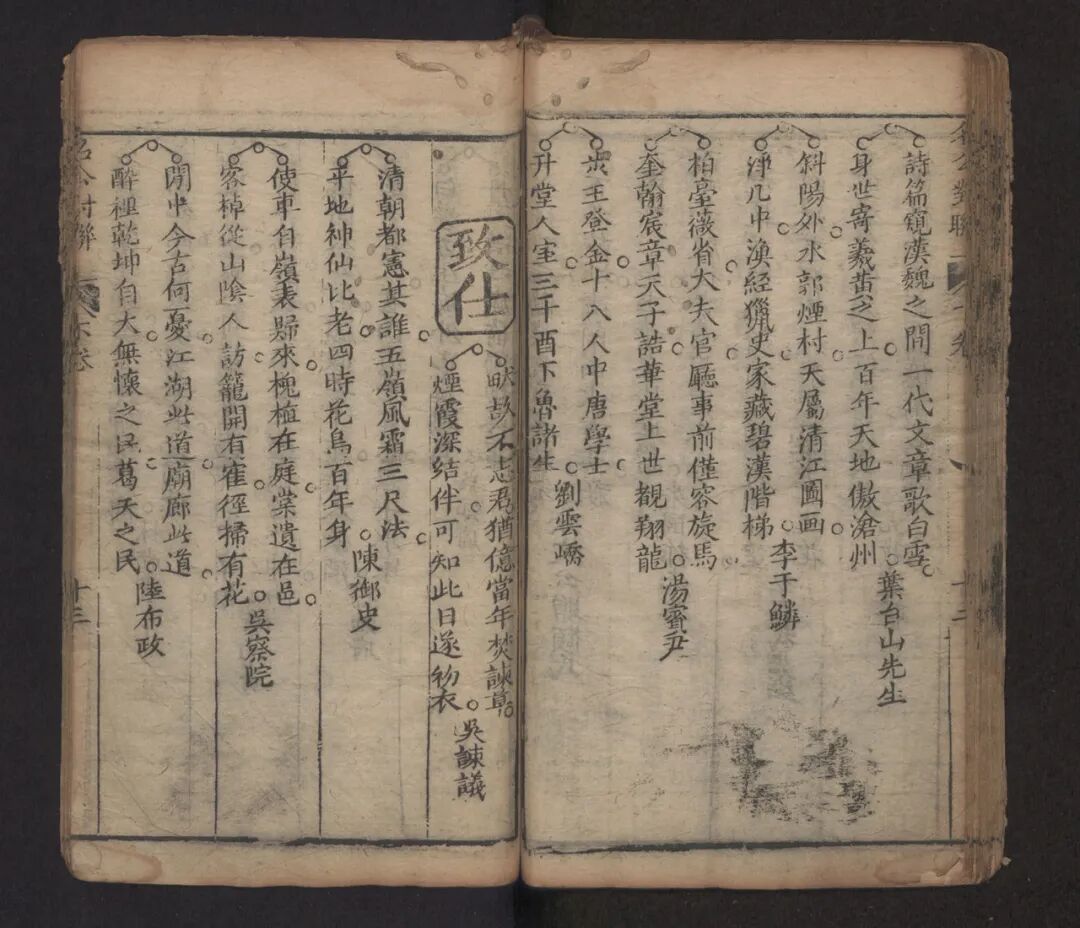 詩篇窺漢魏之間一代文章歌白雪
身世寄羲黃之上百年天地傲滄州
葉台山先生
斜陽外水郭煙村天屬清江圖画
淨几中漁經獵史家藏碧漢階梯
李于鱗
柏臺薇省大夫官廳事前僅容旋馬
奎翰宸章天子誥華堂上世覩翔龍
湯賔尹
步王登金十八人中唐學士
升堂人室三千酉下魯諸生
劉雲嶠
致仕
畎畝不忘君猶億當年焚諫草
煙霞深結伴可知此日遂初衣
吳諫議
清朝都憲其誰五嶺風霜三尺法
平地神仙比老四時花鳥百年身
陳御史
使車自嶺表歸來槐植在庭棠遺在邑
客棹從山陰人訪籠開有雀徑掃有花
吳察院
閒中今古何憂江湖此道廟廊此道
醉裡乾坤自大無懷之民葛天之民
陸布政
名公對聯
十三